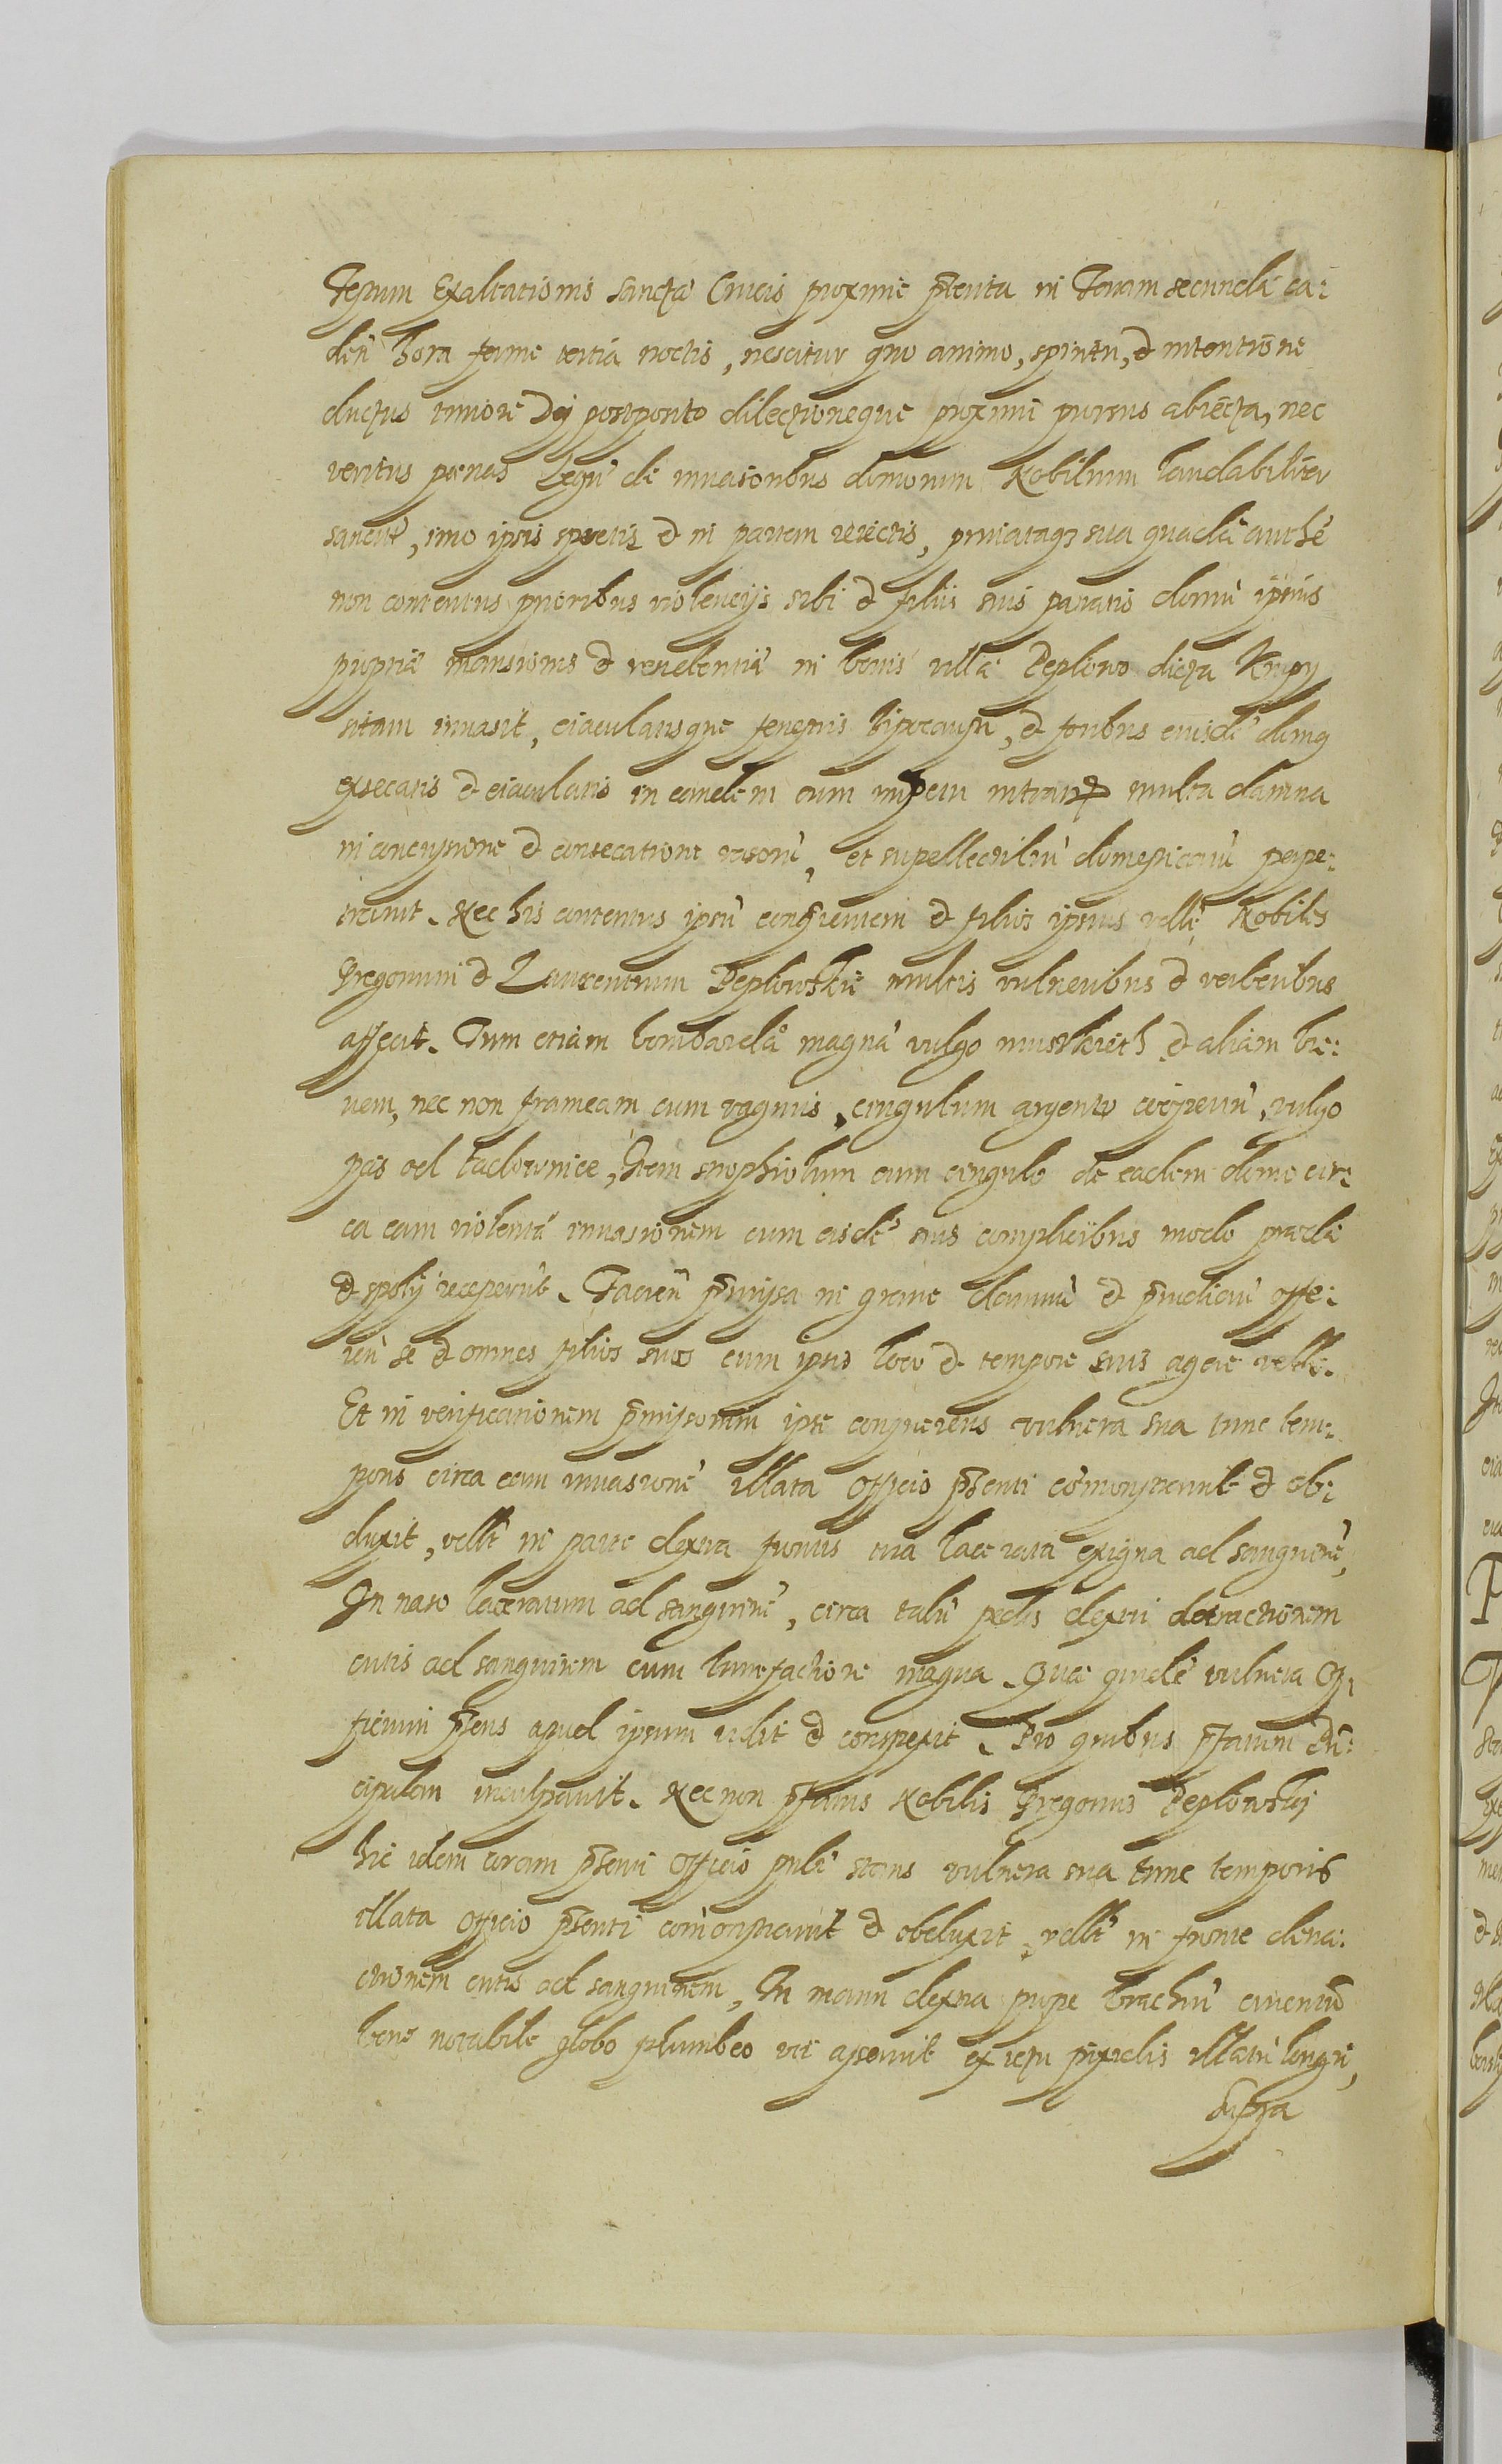 Festum Exaltationis Sanctæ Crucis proximè p̄terita in Feriam secundā ca:
deñ hora ferme tertia noctis, nescitur quo animo, spiritu, et intentione
ductus timore Dei postposito dilectioneque proximi pursus abiecta, nec
veritus pœnas Legū de invasoribus domorum Nobilium laudabiliter
sancit', imo ipsis spretis et in partem reiectis, privataq3 sua quadā authē
non contentus prioribus violencijs sibi et filiis suis paratis domū ipsius
propriæ mansionis et residentiæ in bonis villæ Peplowo dicta Krupy
sitam invasit, eiacularisque fenestris hipocausti, et foribus eiusdē domq
exsecatis et eiaculatis in eandem cum impetu intrans multa damna
in concussione et consecatione vasorū, et supellectiliū domesticarū perpe:
travit. Nec his contentus ipsū conquerentem et filios ipsius vdlt Nobiles
Gregorium et Laurentium Peplowskie multis vulneribus et verberibus
affecit. Tum etiam bombardā magnā vulgo muskieth et aliam bre:
vem, nec non frameam cum vaginis, cingulum argento coopertū, vulgo
pas od ładownice, Item strophiolum cum cingulo de eadem domo cir:
ca eam violentā invasionem cum eisdē suis complicibus modo prædæ
et spolij receperūt. Facieñ p̄missa in grave damnū et p̄iudiciū offe:
reñ se et omnes filios suos cum ipso loco et tempore suis agere velle.
Et in verificationem p̄missorum ipse conquerens vulnera sua tunc tem:
poris circa eam invasionē illata Officio p̄senti cōmonstravit et ob:
duxit, vdlt in parte dextra frontis una lacerata exigua ad sanguinē,
In naso laceratum ad sanguinē, circa talū pedis dextri detractionem
cutis ad sanguinem cum tumefactione magna. Quæ quidē vulnera Of:
ficium p̄sens apud ipsum vidit et conspexit. Pro quibus p̄fatum Prī:
cipalem inculpavit. Nec non p̄fatus Nobilis Gregorius Peplowski
hic idem coram p̄senti Officio psltr stans vulnera sua tunc temporis
illata Officio p̄senti cōmonstravit et obduxit, vdlt in fronte detra:
ctionem cutis ad sanguinem, In manu dextra prope brachiū cruentū
bene notabile globo plumbeo uti asseruit ex ictu pixidis illatū longū,
Supra